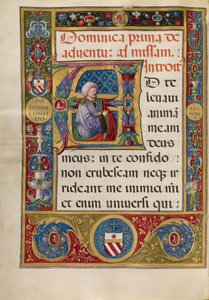 Dominica prima de
adventu: ad missam.
Introit
D te
levavi
animā
meam
deus
meus: in te confido
non erubescam neqȝ ir
rideant me inimici mi
et enim universi qui: